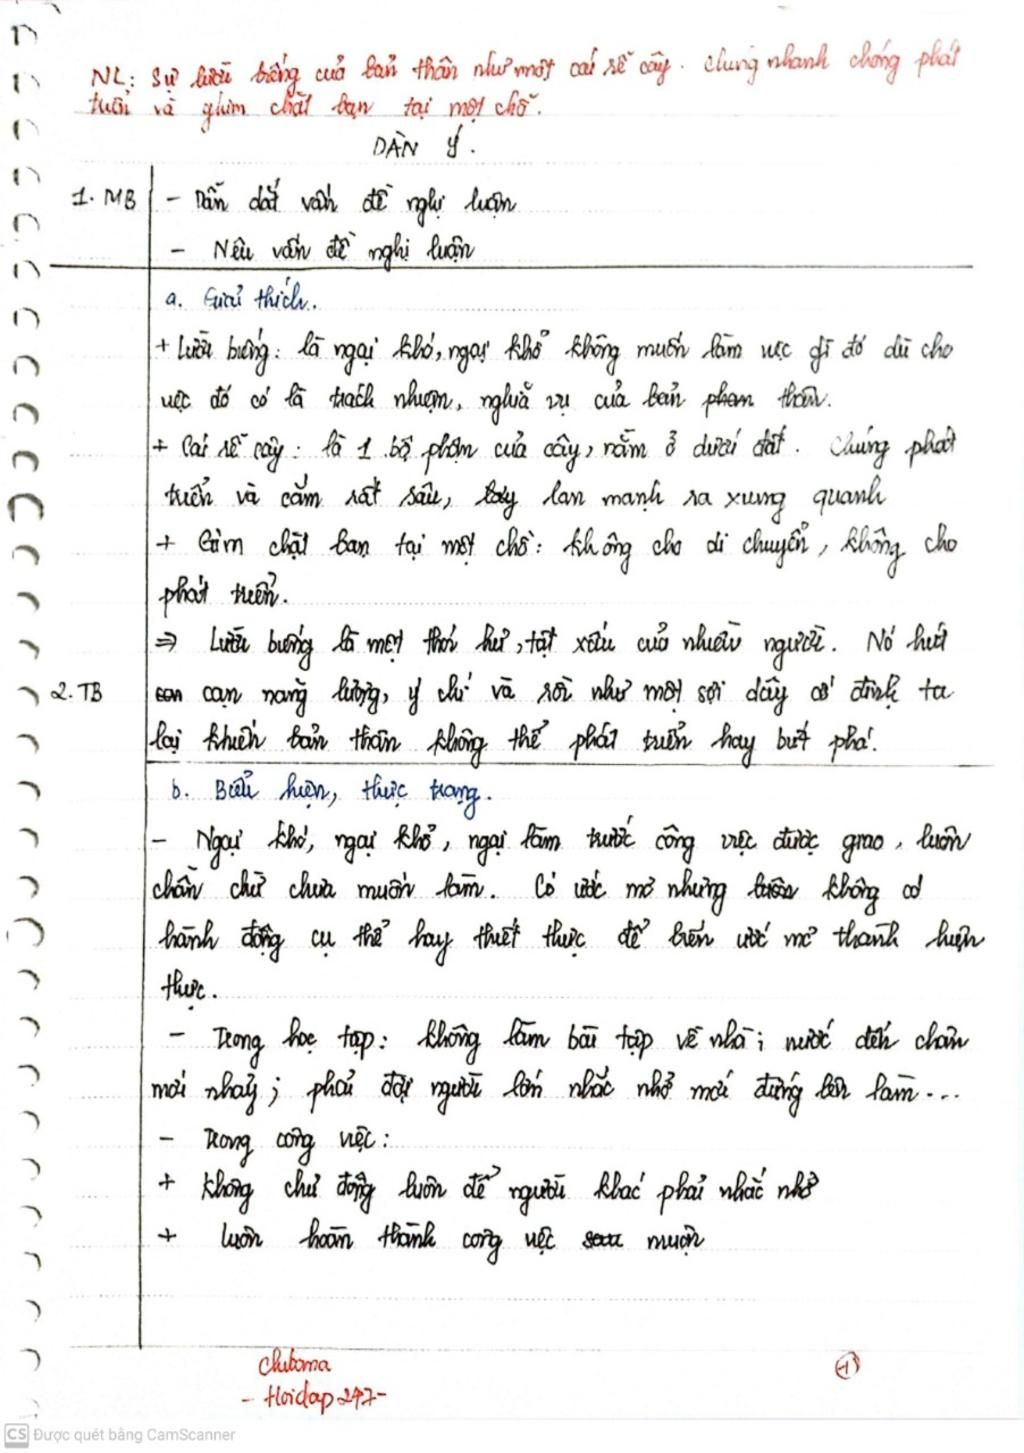 NL: Sự lười biếng của bản thân như một cái rễ cây. Chúng nhanh chóng phát
triển và ghim chặt bạn tại một chỗ.
DÀN Ý.
1. MB
- Dẫn dắt vấn đề nghị luận
- Nêu vấn đề nghị luận
2. TB
a. Giải thích.
+ Lười biếng: là ngại khó, ngại khổ không muốn làm việc gì đó dù cho
việc đó có là trách nhiệm, nghĩa vụ của bản thân.
+ Cái rễ cây: là 1 bộ phận của cây, nằm ở dưới đất. Chúng phát
triển và cắm rất sâu, lan mạnh ra xung quanh
+ Gìm chặt bạn tại một chỗ: không cho di chuyển, không cho
phát triển.
⇒ Lười biếng là một thói hư, tật xấu của nhiều người. Nó hút
cạn năng lượng, ý chí và rồi như một sợi dây cố định ta
lại khiến bản thân không thể phát triển hay bứt phá.
b. Biểu hiện, thực trạng.
- Ngại khó, ngại khổ, ngại làm trước công việc được giao, luôn
chần chừ chưa muốn làm. Có ước mơ nhưng không có
hành động cụ thể hay thiết thực để biến ước mơ thành hiện
thực.
- Trong học tập: không làm bài tập về nhà; nước đến chân
mới nhảy; phải đợi người lớn nhắc nhở mới đứng lên làm...
- Trong công việc:
+ Không chủ động luôn để người khác phải nhắc nhở
+ luôn hoàn thành công việc muộn
Chiboma
- Hoidap247-
1
CS Được quét bằng CamScanner